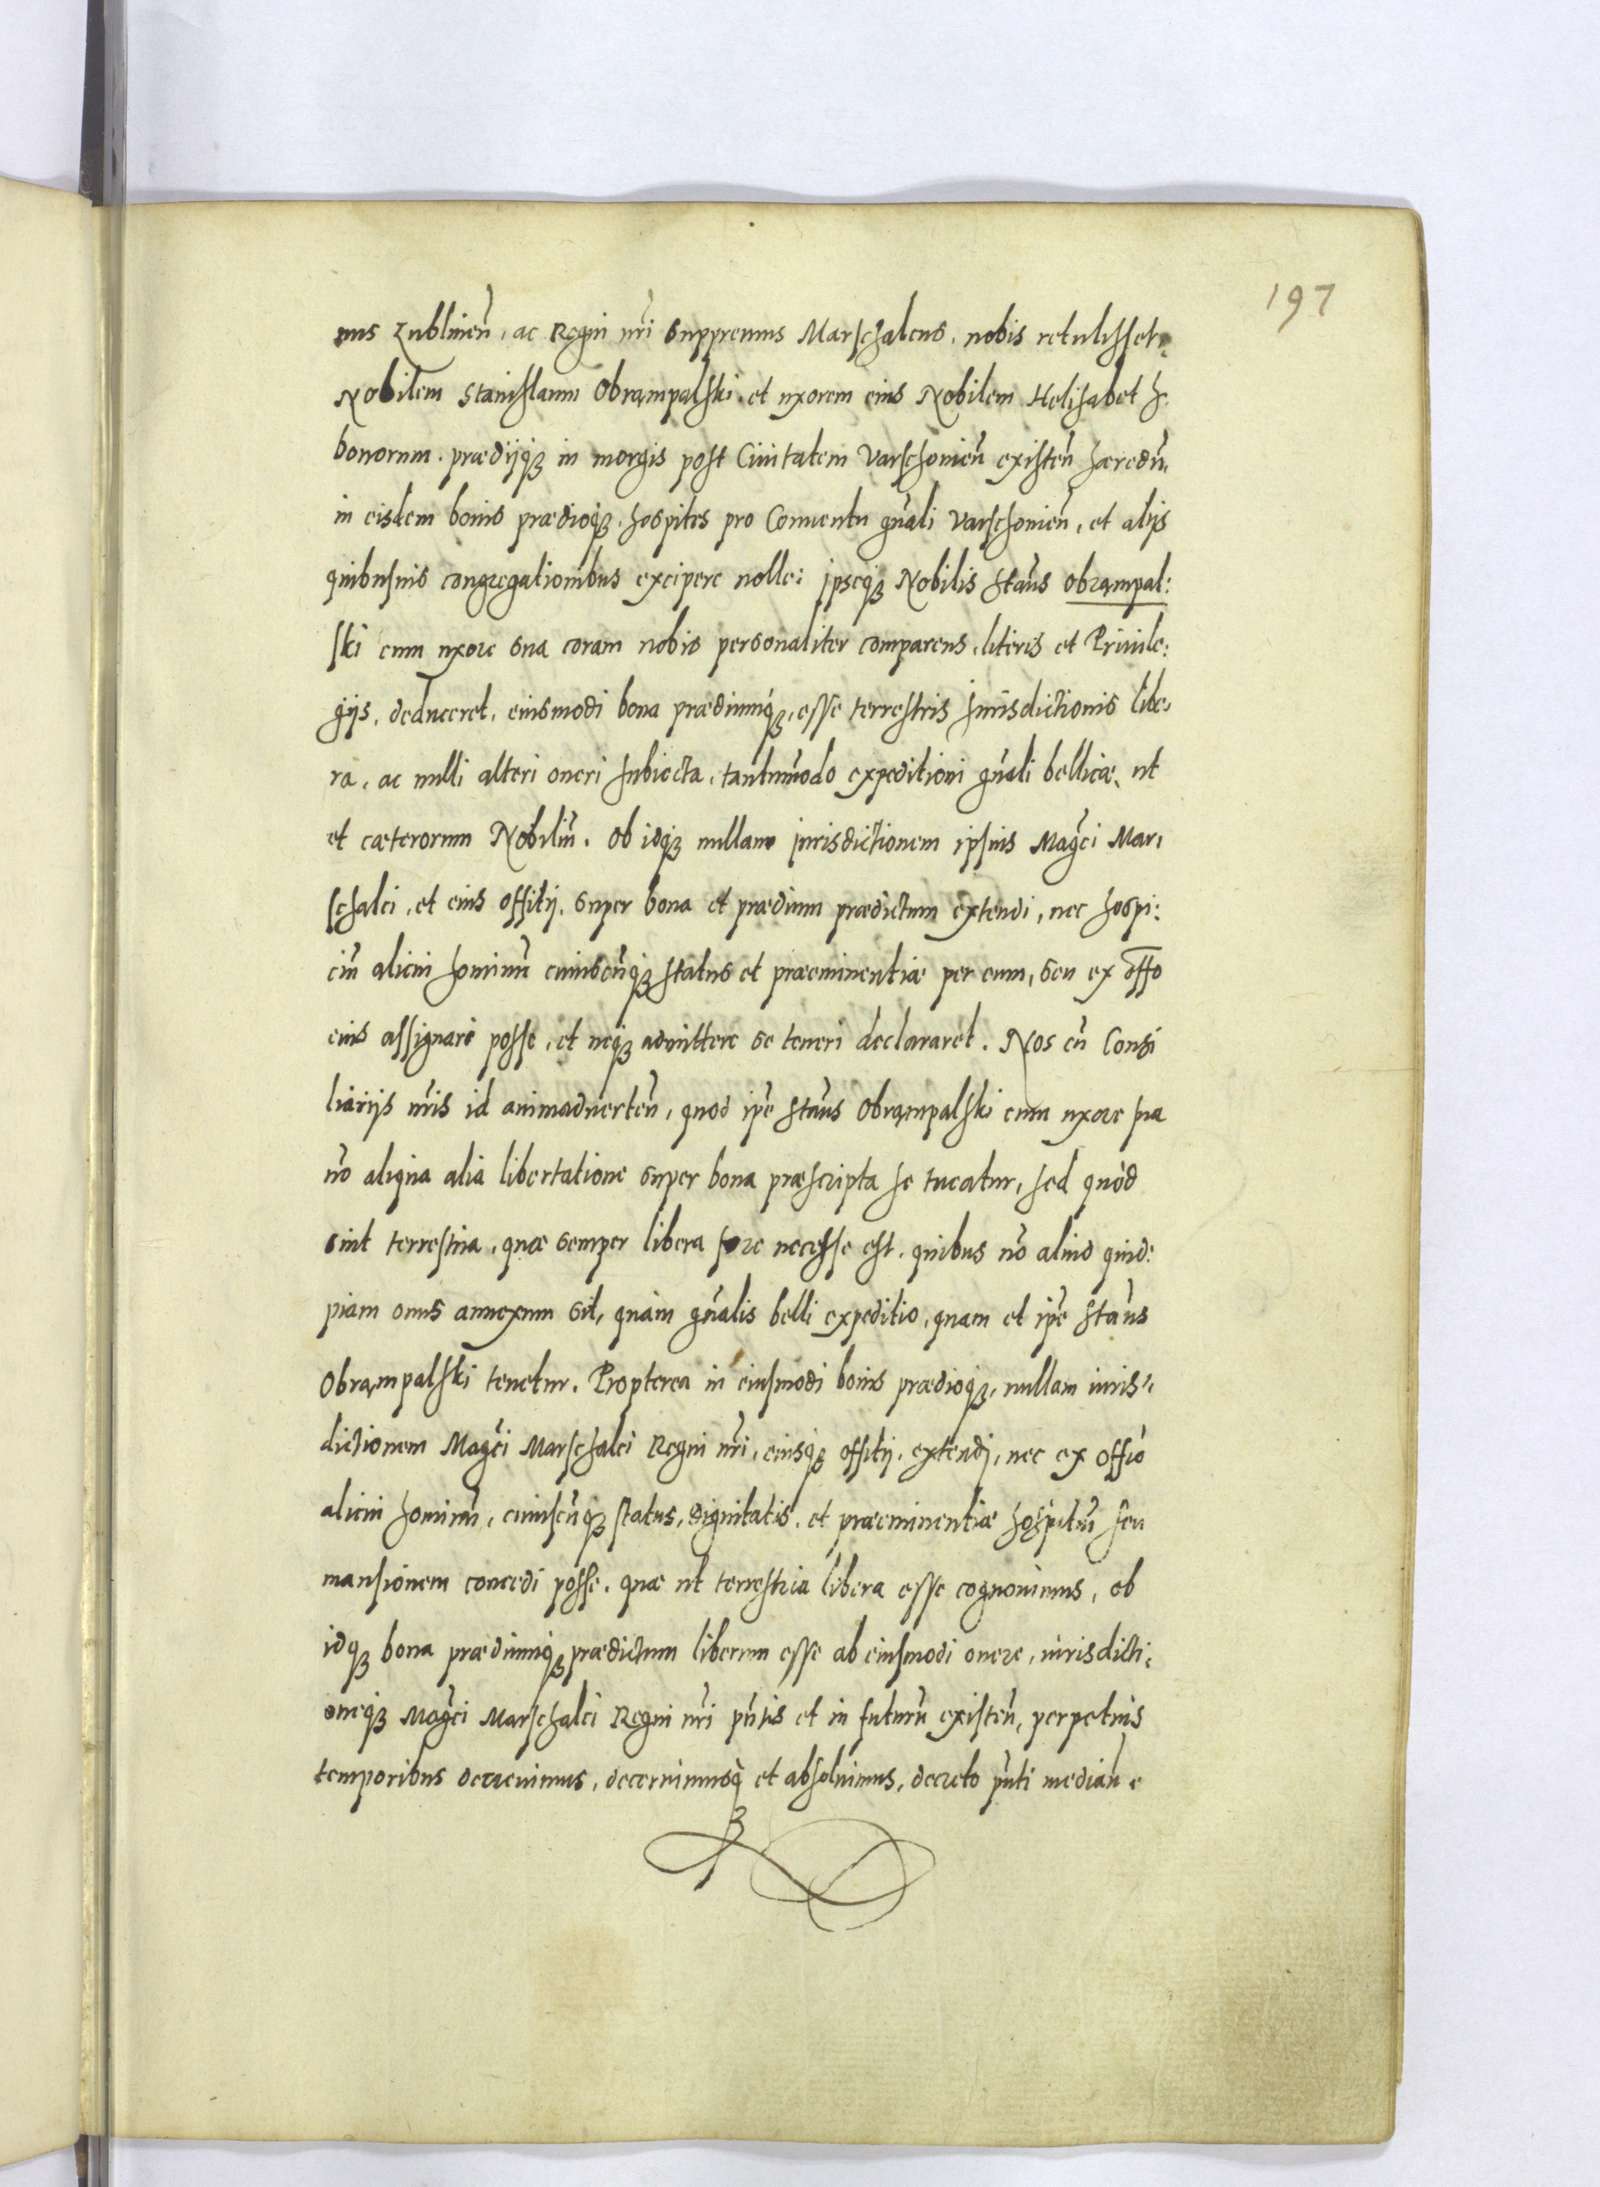 197
nus Lublinen̄, ac Regni nr̄i Suppremus Marschalcus, nobis retulisset
Nobilem Stanislaum Obrąmpalski et uxorem eius Nobilem Helisabet h.
bonorum prædijq₃ in morgis post Ciuitatem Varschouien̄ existen̄ hæredū,
in eisdem bonis prædioq₃ hospites pro Conuentu gn̄ali Varschouien̄, et alijs
quibusuis congregationibus excipere nolle: ipseq₃ Nobilis Staūs Obrąmpal:
ski cum uxore sua coram nobis personaliter comparens, literis et Priuile:
gijs, deduceret, eiusmodi bona prædiumq₃, esse terrestris Jurisdictionis libe,
ra, ac nulli alteri oneri subiecta, tantum̄odo expeditioni gn̄ali bellicæ, ut
et cæterorum Nobiliū. Ob idq₃ nullam jurisdictionem ipsius Magc̄i Mar,
schalci, et eius offitij, super bona et prædium prædictum extendi, nec hospi:
ciū alicui hominū cuiuscūq₃ status et præeminentiæ per eum, seu ex offo
eius assignari posse, et neq₃ admittere se teneri declararet. Nos cū Consi
liarijs nr̄is id animaduerten̄, quod ipē Staūs Obrąmpalski cum uxore sua
nō aliqua alia libertatione super bona præscripta se tueatur, sed quòd
sint terrestria, quæ semper libera fore necesse est, quibus nō aliud quid:
piam onus annexum sit, quàm gn̄alis belli expeditio, quam et ipē Staūs
Obrąmpalski tenetur. Propterea in eiusmodi bonis prædioq₃, nullam iuris,
dictionem Magc̄i Marschalci Regni nr̄i, eiusq₃ offitij, extendj, nec ex offio
alicui hominū, cuiuscūq₃ status, dignitatis, et præeminentiæ hospitiū seu
mansionem concedi posse, quæ ut terrestria libera esse cognouimus, ob
idq₃ bona prædiumq₃ prædictum liberum esse ab eiusmodi onere, iurisdicti:
oneq₃ Magc̄i Marschalci Regni nr̄i pn̄tis et in futurū existen̄, perpetuis
temporibus decreuimus, decernimusq₃ et absoluimus, decreto pn̄ti median̄e